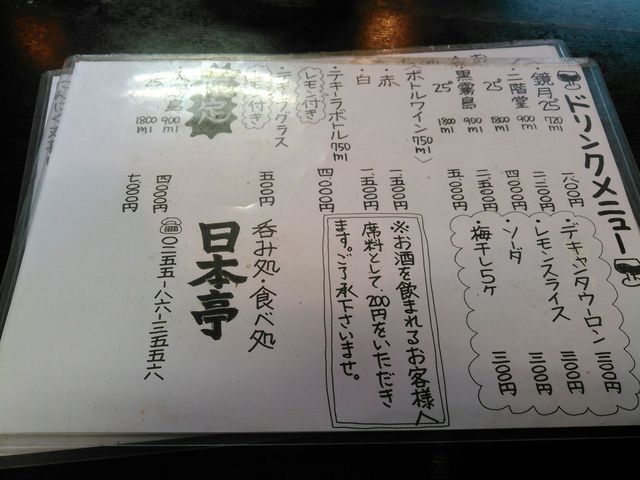 ドリンクメニュー
・鏡月 25° 720ml
・二階堂 25° 900ml 二、二〇〇円
1800ml 四、〇〇〇円
・黒霧島 25° 900ml 二、五〇〇円
1800ml 五、〇〇〇円
〈ボトルワイン 750ml〉
・赤
・白
・テキーラボトル 750ml 四、〇〇〇円
レモン付き
・テキーラグラス 五〇〇円
レモン付き
限定
島 25° 900ml 四、〇〇〇円
1800ml 七、〇〇〇円
・デキャンタウーロン 三〇〇円
・レモンスライス 三〇〇円
・ソーダ 三〇〇円
・梅干し5ヶ 三〇〇円
※お酒を飲まれるお客様へ
席料として、200円をいただき
ます。ご了承下さいませ。
呑み処・食べ処
日本亭
☎〇二五五-八六-三五五六